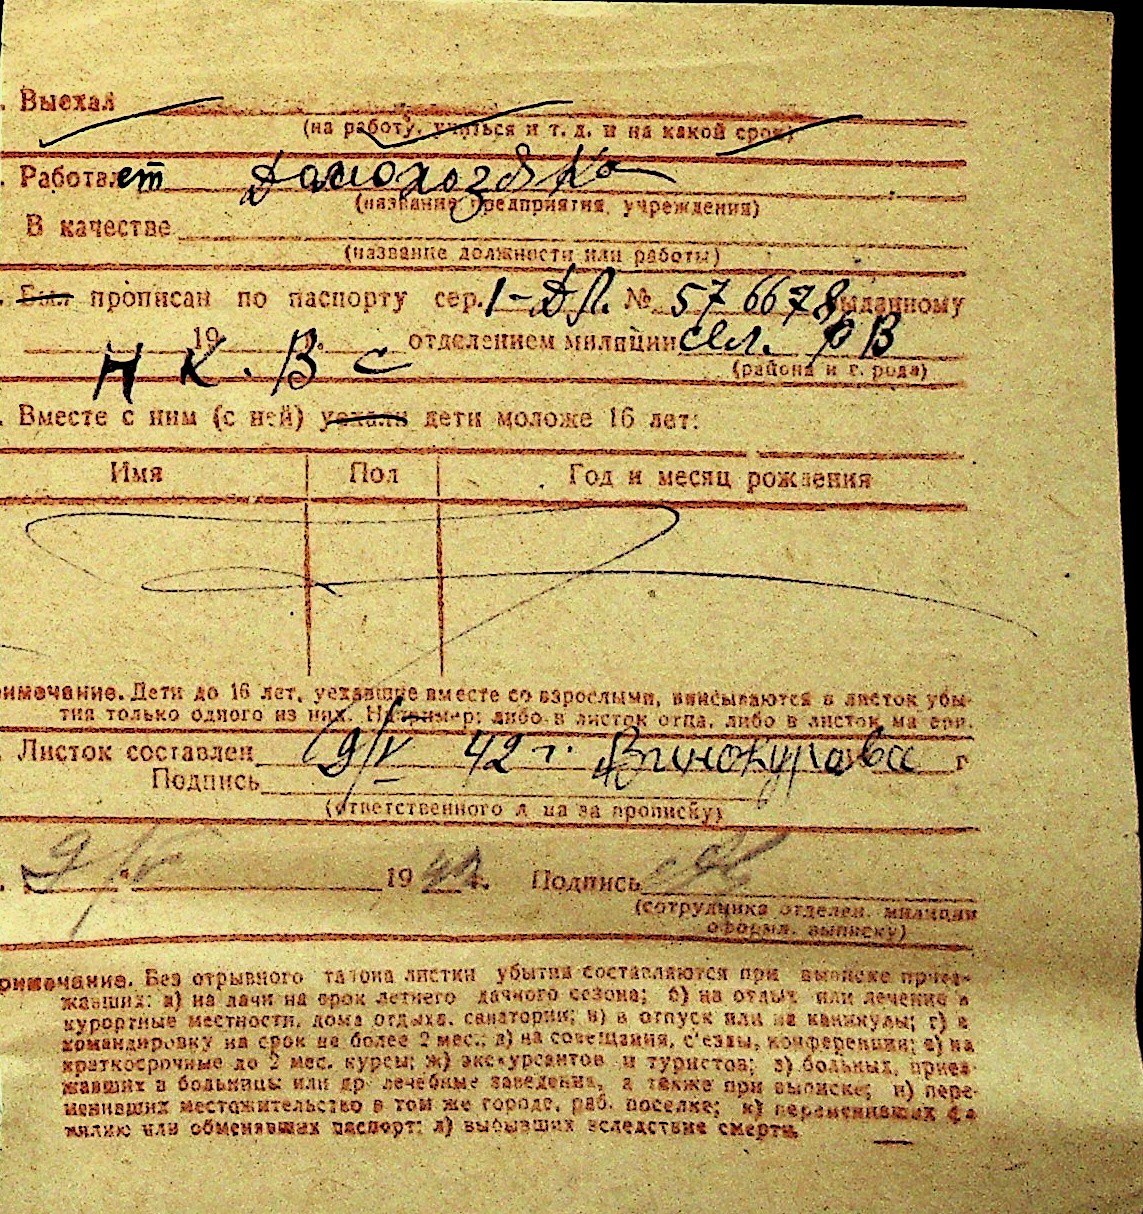 . Выехал
(на работу, учиться и т. д. и на какой срок)
. Работает Домохозяйка
(название предприятия, учреждения)
В качестве
(название должности или работы)
. Был прописан по паспорту сер. 1-ДЛ. № 576678 выданному
19 г. отделением милиции РВ
Н К. В
(района и г. рода)
. Вместе с ним (с ней) уехали дети моложе 16 лет:
Имя Пол Год и месяц рождения
имечание. Дети до 16 лет, уехавшие вместе со взрослыми, вписываются в листок убы-
тия только одного из них. Например: либо в листок отца, либо в листок ма ери.
. Листок составлен 9/V 42 г. Винокурова г
Подпись
(ответственного л ца за прописку)
. 9/V 1942 г. Подпись
(сотрудника отделен. милиции
оформл. выписку)
римечание. Без отрывного талона листки убытия составляются при выписке приез-
жавших: а) на дачи на срок летнего дачного сезона; б) на отдых или лечение в
курортные местности, дома отдыха, санатории; в) в отпуск или на каникулы; г) в
командировку на срок не более 2 мес.; д) на совещания, с'езды, конференции; е) на
краткосрочные до 2 мес. курсы; ж) экскурсантов и туристов; з) больных, приез-
жавших в больницы или др лечебные заведения, а также при выписке; и) пере-
менивших местожительство в том же городе, раб. поселке; к) переменивших фа-
милию или обменявших паспорт; л) выбывших вследствие смерти.